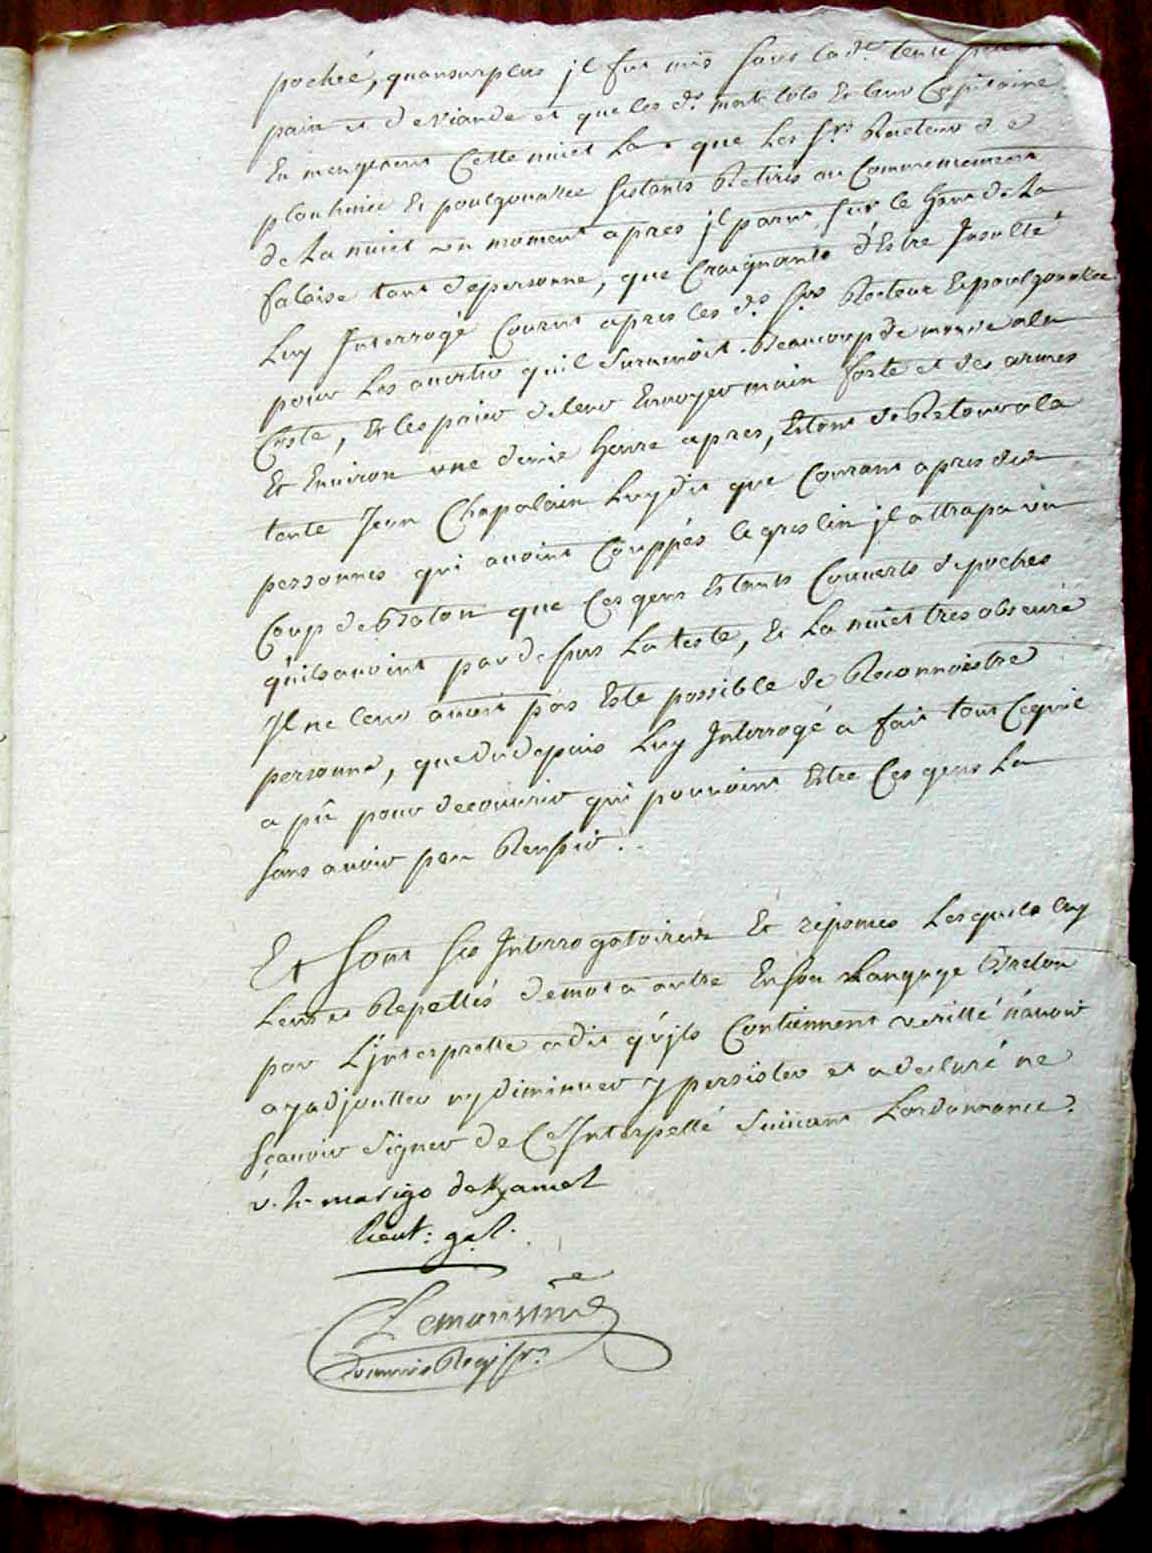 poché, quausurplus jl fut mis sous lad.te tente
pain et de viande et que les d.s matelots Et leur Capitaine
En mangerent Cette nuict La. que Les s.rs Recteur de
plouhinec Et poulgouazec s'estants Retirés au Commencement
de La nuict un moment apres jl parut sur le haut de La
falaise tant de personne, que Craignants d'Estre Insulté
Luy Interrogé Courut apres les d.s s.rs Recteur Et poulgouazec
pour Les avertir qu'il survenoit Beaucoup de monde a la
Coste, Et les prier de leur Envoyer main forte et des armes
Et Environ une demie heure apres, Estant de Retour a la
tente Jean Chapalain Luy dit que Courant apres des
personnes qui avoint Couppés le greslin jl attrapa un
Coup de Baton que Ces gens Estants Couverts de poches
qu'ils avoint par dessus La teste, Et La nuict tres obscure
Il ne leur avoit pas Esté possible de Reconnoistre
personne, que du depuis Luy Interrogé a fait tout Ce qu'il
a pû pour decouvrir qui pouvoint Estre Ces gens La
sans avoir peu Reussir..
Et sont ses Interrogatoires Et réponces Lesquels luy
Leus et Repettés de mot a autre En son Langage Breton
par L'jnterprette a dit qu'jls Contiennent veritté n'avoir
a y adjoutter ny diminuer y persister et a declaré ne
sçavoir signer de Ce Interpellé suivant L'ordonnance.
v. h. marigo de Kamel
lieut: g.al.
Lemoyne
Commis Regist.r